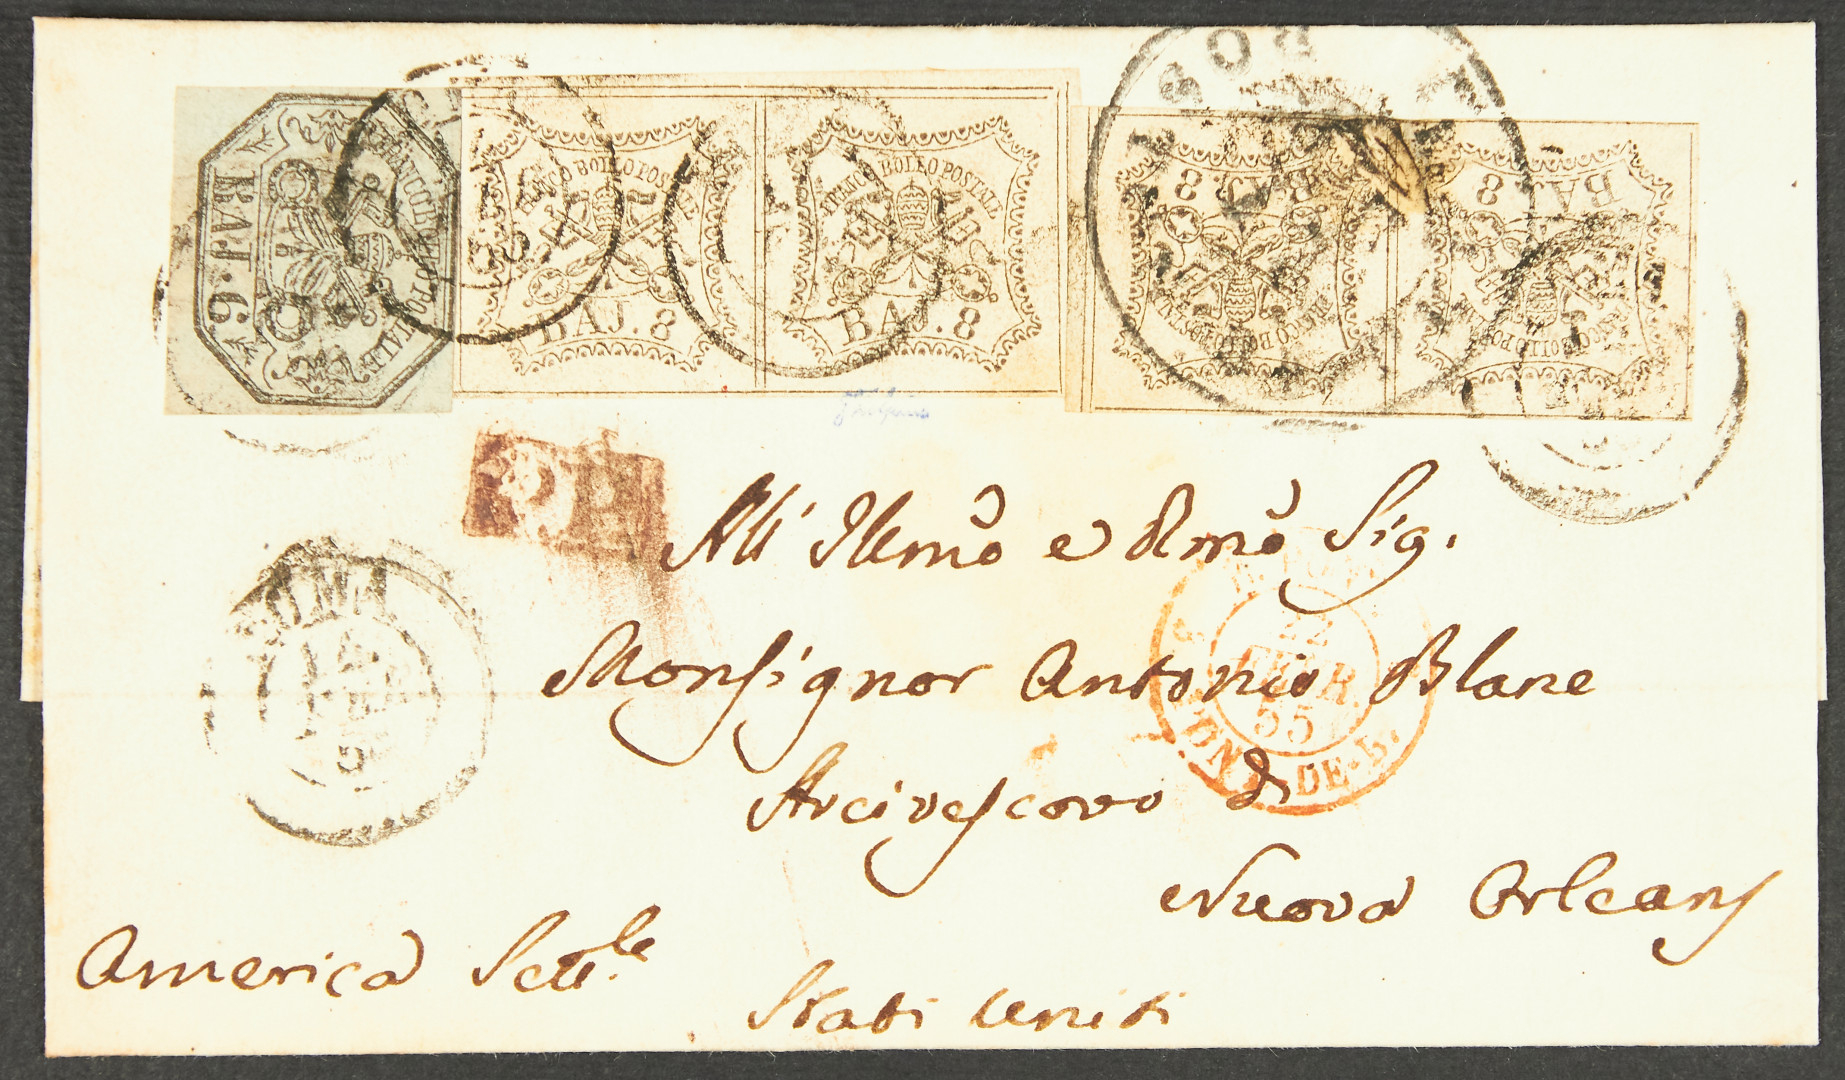 FRANCO BOLLO POSTALE
BAJ. 6
FRANCO BOLLO POSTALE
BAJ. 8
FRANCO BOLLO POSTALE
BAJ. 8
FRANCO BOLLO POSTALE
BAJ. 8
FRANCO BOLLO POSTALE
BAJ. 8
BOS
ROMA
22
FEVR.
55
PONT-DE-B.
All' Illmō e Rmō Sig.
Monsignor Antonio Blanc
Arcivescovo di
Nuova Orleans
America Sett.le
Stati Uniti